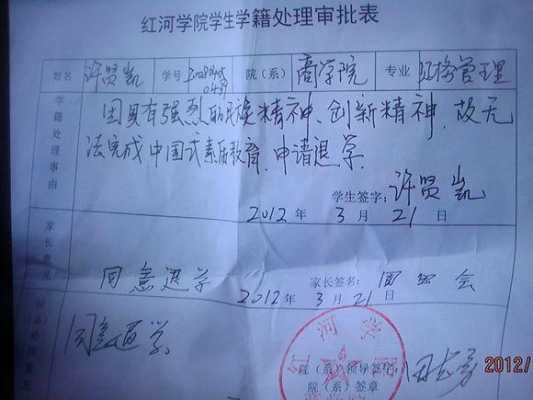 红河学院学生学籍处理审批表
姓名 许贤凯 学号 院（系） 商学院 专业 工商管理
学籍处理事由
因具有强烈的民族精神、创新精神，故无
法完成中国式素质教育，申请退学。
学生签字：许贤凯
2012 年 3 月 21 日
家长意见
同意退学 家长签名：
2012 年 3 月 21 日
同意退学
红河学
院（系）领导签字
院（系）签章
2012/